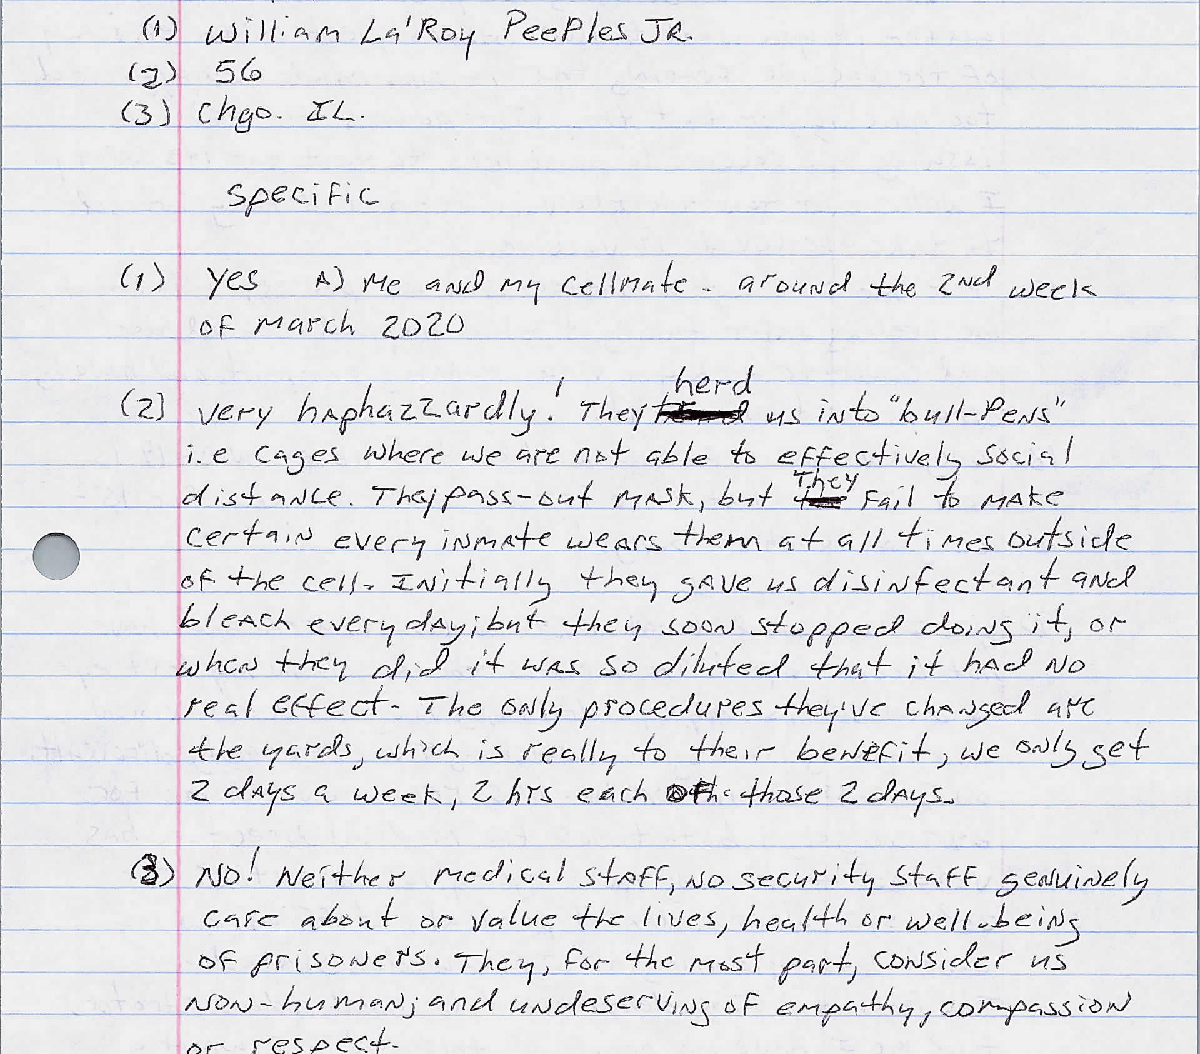 (1) William La'Roy Peeples JR.
(2) 56
(3) Chgo. IL.
specific
(1) Yes A) Me and my cellmate - around the 2nd week
of March 2020
(2) Very haphazzardly! They herd us into "bull-Pens"
i.e cages where we are not able to effectively social
distance. They pass-out mask, but They fail to make
certain every inmate wears them at all times outside
of the cell. Initially they gave us disinfectant and
bleach everyday; but they soon stopped doing it, or
when they did it was so diluted that it had no
real effect. The only procedures they've changed are
the yards, which is really to their benefit, we only get
2 days a week, 2 hrs each of those 2 days.
(3) No! Neither medical staff, no security staff genuinely
care about or value the lives, health or well-being
of prisoners. They, for the most part, consider us
non-human; and undeserving of empathy, compassion
or respect.